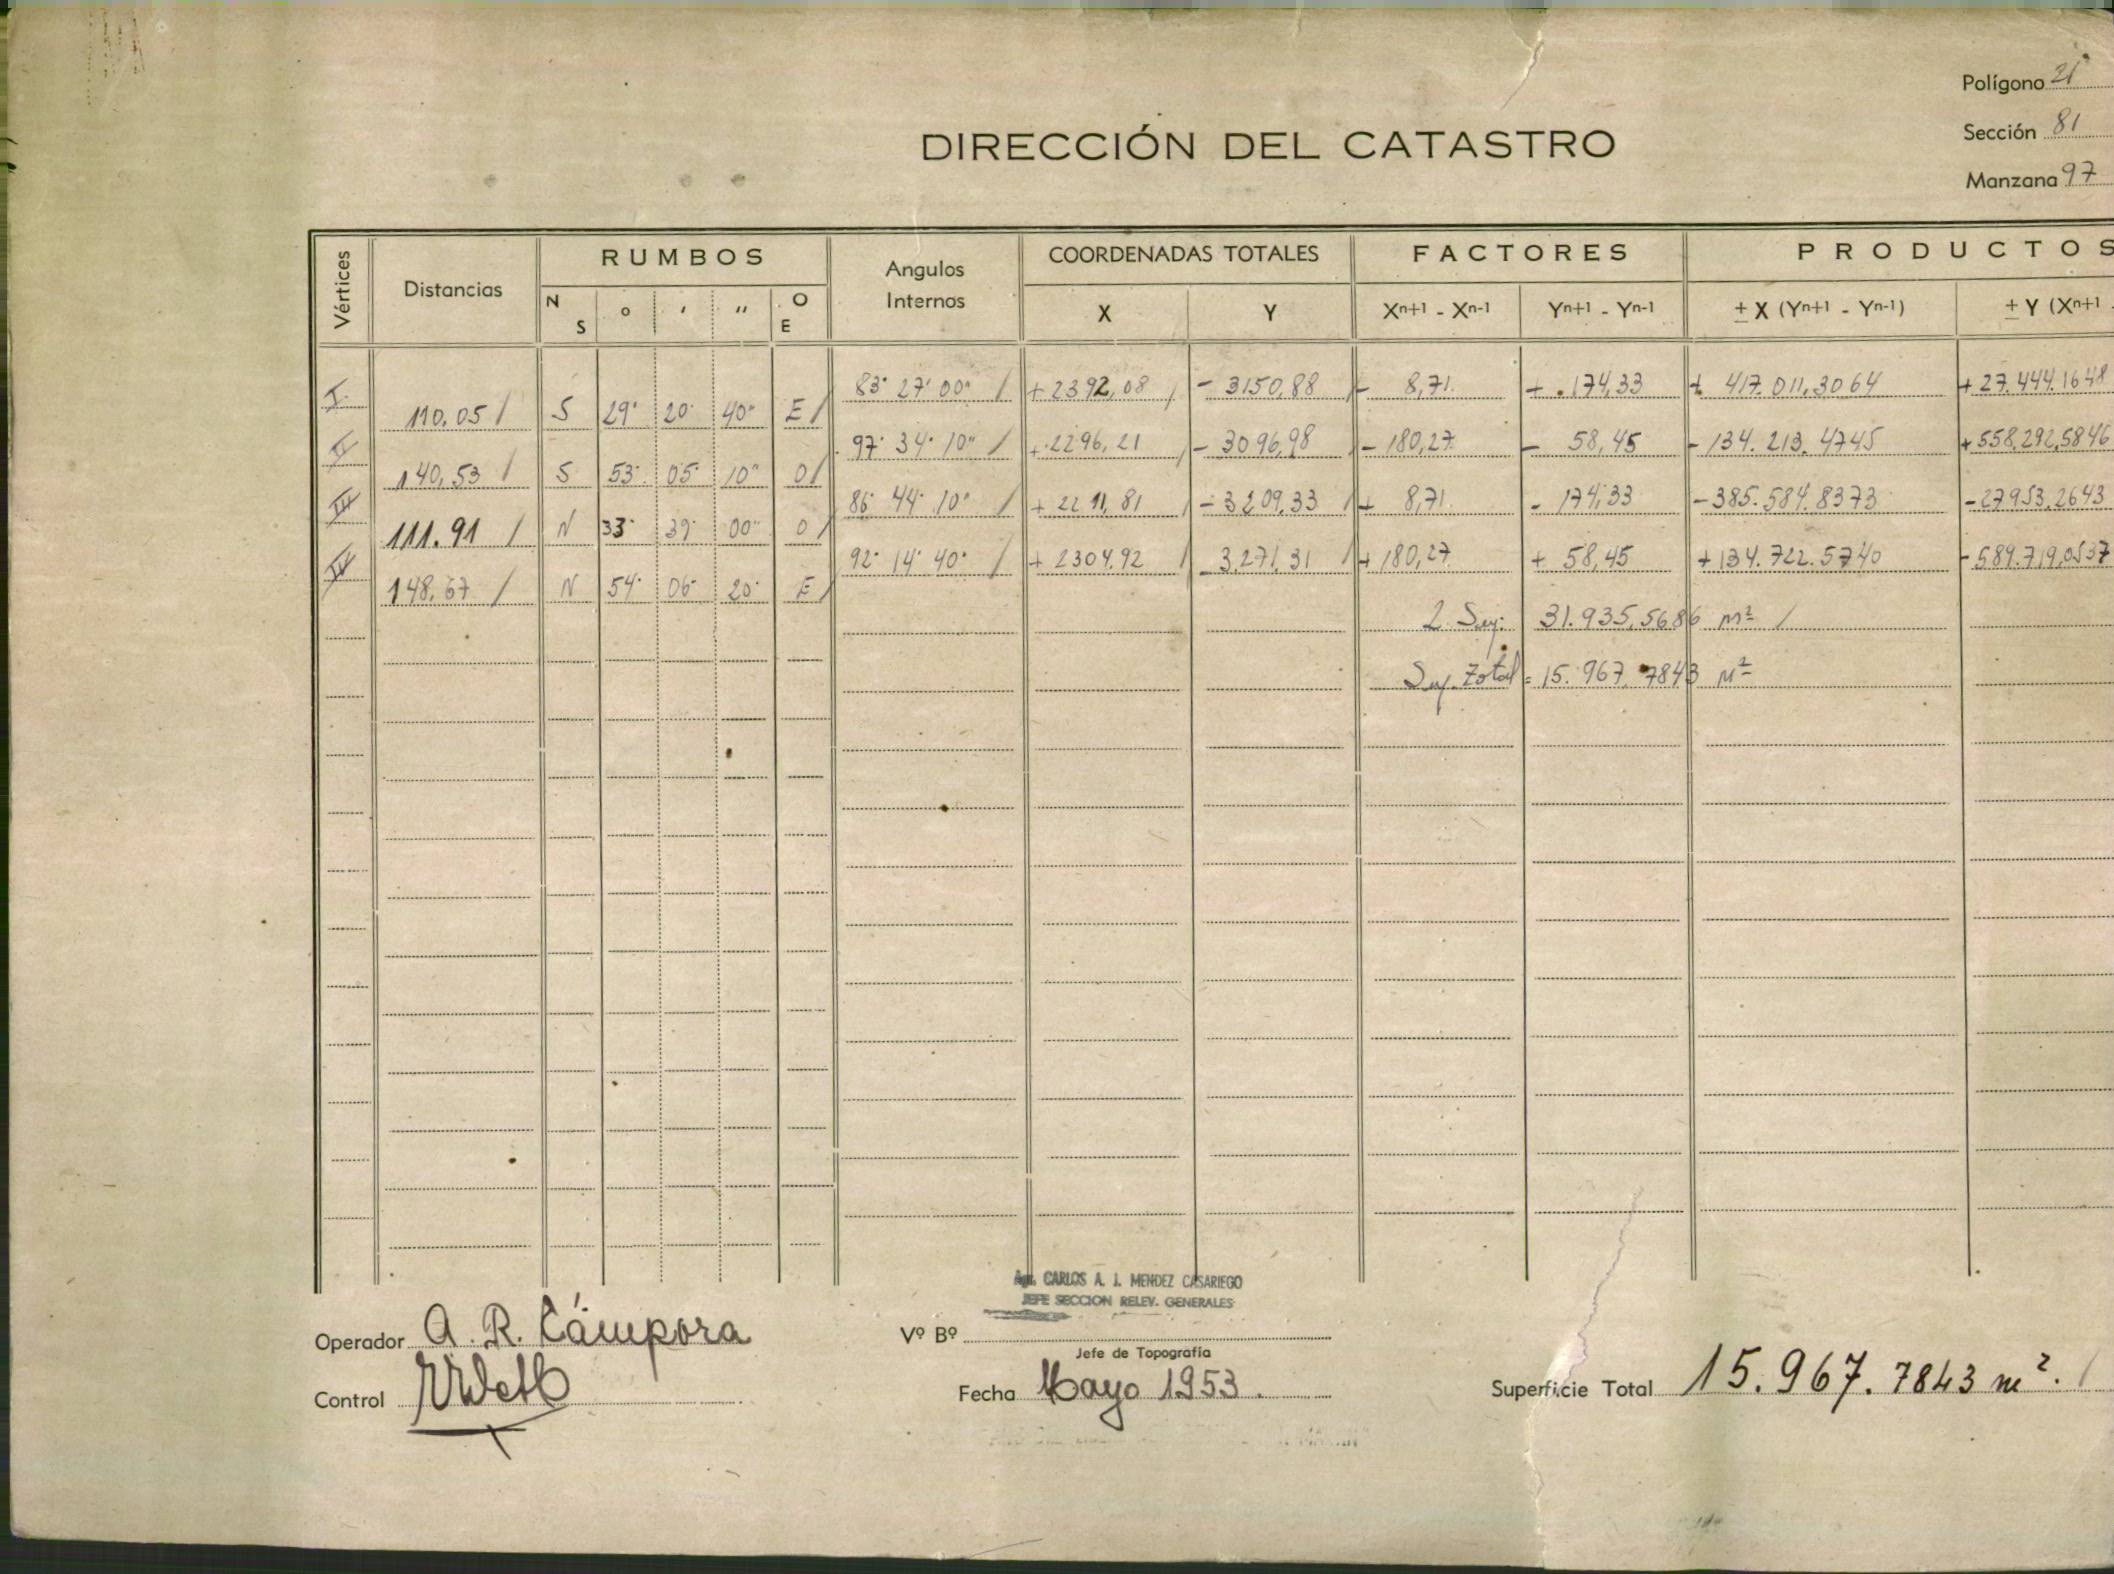 Polígono 21
Sección 81
Manzana 97
DIRECCIÓN DEL CATASTRO
Vértices Distancias RUMBOS Angulos Internos COORDENADAS TOTALES FACTORES PRODUCTOS
N S ° ' " O E X Y Xn+1 - Xn-1 Yn+1 - Yn-1 ± X (Yn+1 - Yn-1) ± Y (Xn+1 -
I 83° 27' 00" / + 2392,08 / - 3150,88 - 8,71 + 174,33 + 417.011,3064 + 27.444.1648
110.05 / S 29° 20' 40" E /
II 97° 34' 10" / + 2296,21 / - 3096,98 - 180,27 - 58,45 - 134.213.4745 + 558.292,5846
140,53 / S 53° 05' 10" O /
III 86° 44' 10" / + 2211,81 / - 3209,33 / + 8,71 - 174,33 - 385.584.8373 - 27953,2643
111.91 / N 33° 39' 00" O /
IV 92° 14' 40" / + 2304,92 / - 3,271,31 / + 180,27 + 58,45 + 134.722.5740 - 589.719,0537
148,67 / N 54° 06' 20" E /
2 Sup. 31.935,5686 m² /
Sup. Total = 15.967.7843 m²
Agr. CARLOS A. J. MENDEZ CASARIEGO
JEFE SECCION RELEV. GENERALES
Operador A. R. Cámpora Vº Bº
Jefe de Topografía
Control Fecha Mayo 1953. Superficie Total 15.967.7843 m². /